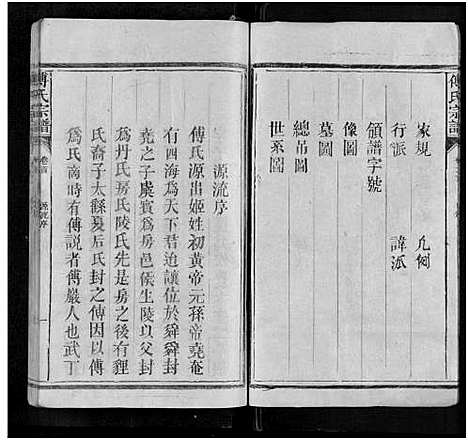 傅氏宗譜
家規　凡例
行派　諱派
領譜字號
像圖
墓圖
總吊圖
世系圖
源流序
傅氏源出姬姓初黃帝元孫帝堯奄
有四海為天下君迨讓位於舜舜封
堯之子虞賓為房邑侯生陵以父封
為丹氏房氏陵氏先是房之後有貍
氏裔子大繇夏后氏封之傅因以傅
為氏商時有傅説者傅巖人也武丁
傅氏宗譜
卷首
源流序
一